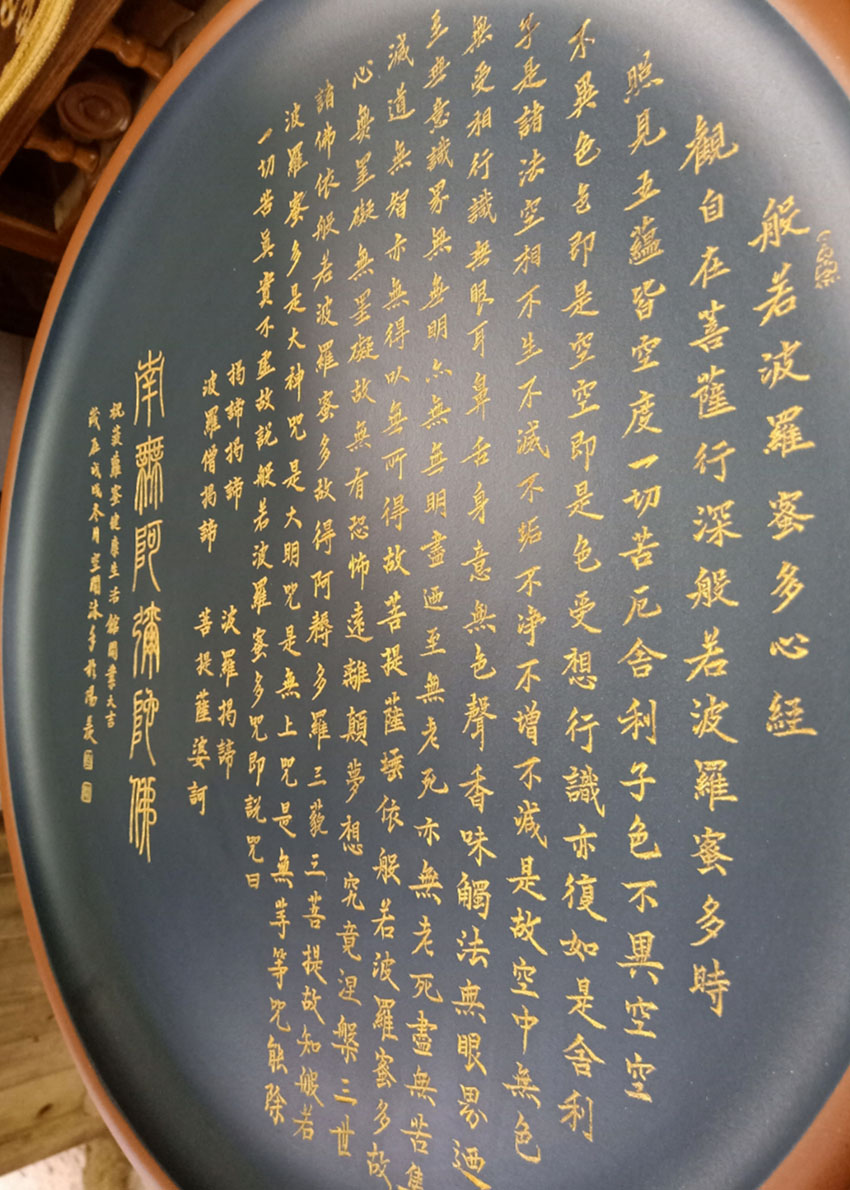 般若波羅蜜多心経
觀自在菩薩行深般若波羅蜜多時
照見五蘊皆空度一切苦厄舍利子色不異空空
不異色色即是空空即是色受想行識亦復如是舍利
子是諸法空相不生不滅不垢不净不增不减是故空中無色
無受相行識無眼耳鼻舌身意無色聲香味觸法無眼界迺
至無意識界無無明亦無無明盡迺至無老死亦無老死盡無苦集
滅道無智亦無得以無所得故菩提薩埵依般若波羅蜜多故
心無罣礙無罣礙故無有恐怖遠離顛夢想究竟涅槃三世
諸佛依般若波羅蜜多故得阿耨多羅三藐三菩提故知般若
波羅蜜多是大神咒是大明咒是無上咒是無等等咒能除
一切苦真實不虛故說般若波羅蜜多咒即說咒曰
揭諦揭諦 波羅揭諦
波羅僧揭諦 菩提薩婆訶
南無阿彌陀佛
祝菠蘿蜜健康生活館開業大吉
歲在戊戌冬月空間沐手於陽羨